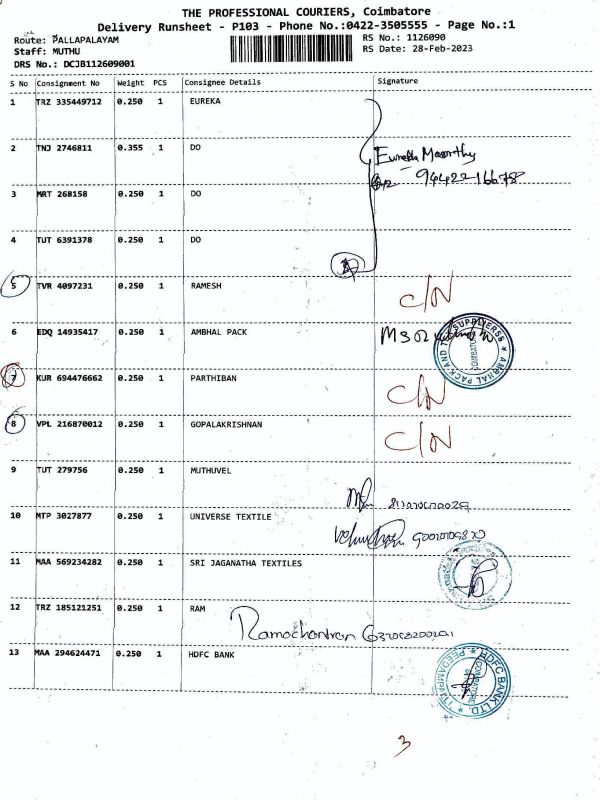 THE PROFESSIONAL COURIERS, Coimbatore
Delivery Runsheet - P103 - Phone No.:0422-3505555 - Page No.:1
Route: PALLAPALAYAM
RS No.: 1126090
Staff: MUTHU
RS Date: 28-Feb-2023
DRS No.: DCJB112609001
S No Consignment No Weight PCS Consignee Details Signature
1 TRZ 335449712 0.250 1 EUREKA
2 TNJ 2746811 0.355 1 DO
Eureka Moorthy
9442216678
3 MRT 268158 0.250 1 DO
4 TUT 6391378 0.250 1 DO
5 TVR 4097231 0.250 1 RAMESH C/N
6 EDQ 14935417 0.250 1 AMBHAL PACK
7 KUR 694476662 0.250 1 PARTHIBAN C/N
8 VPL 216870012 0.250 1 GOPALAKRISHNAN C/N
9 TUT 279756 0.250 1 MUTHUVEL
10 MTP 3027877 0.250 1 UNIVERSE TEXTILE
11 MAA 569234282 0.250 1 SRI JAGANATHA TEXTILES
12 TRZ 185121251 0.250 1 RAM
Ramachandran
13 MAA 294624471 0.250 1 HDFC BANK
HDFC BANK LTD.
COIMBATORE
3